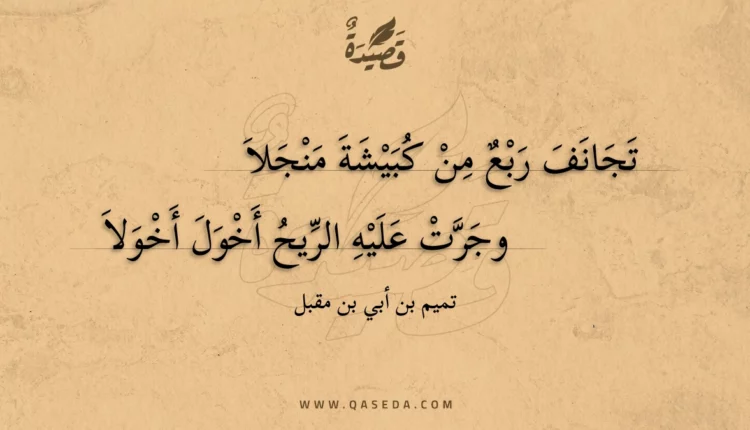 قَصِيْدَةٌ
تَجَانَفَ رَبْعٌ مِنْ كُبَيْشَةَ مَنْجَلاَ
وجَرَّتْ عَلَيْهِ الرِّيحُ أَخْوَلَ أَخْوَلاَ
تميم بن أبي بن مقبل
WWW.QASEDA.COM